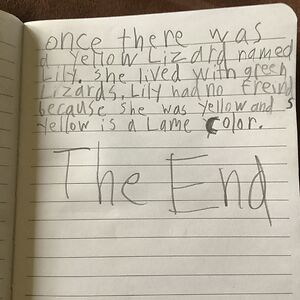 once there was
a Yellow Lizard named
Lily. She lived with green
Lizards. Lily had no freind
because she was Yellow and s
Yellow is a Lame Color.
The End